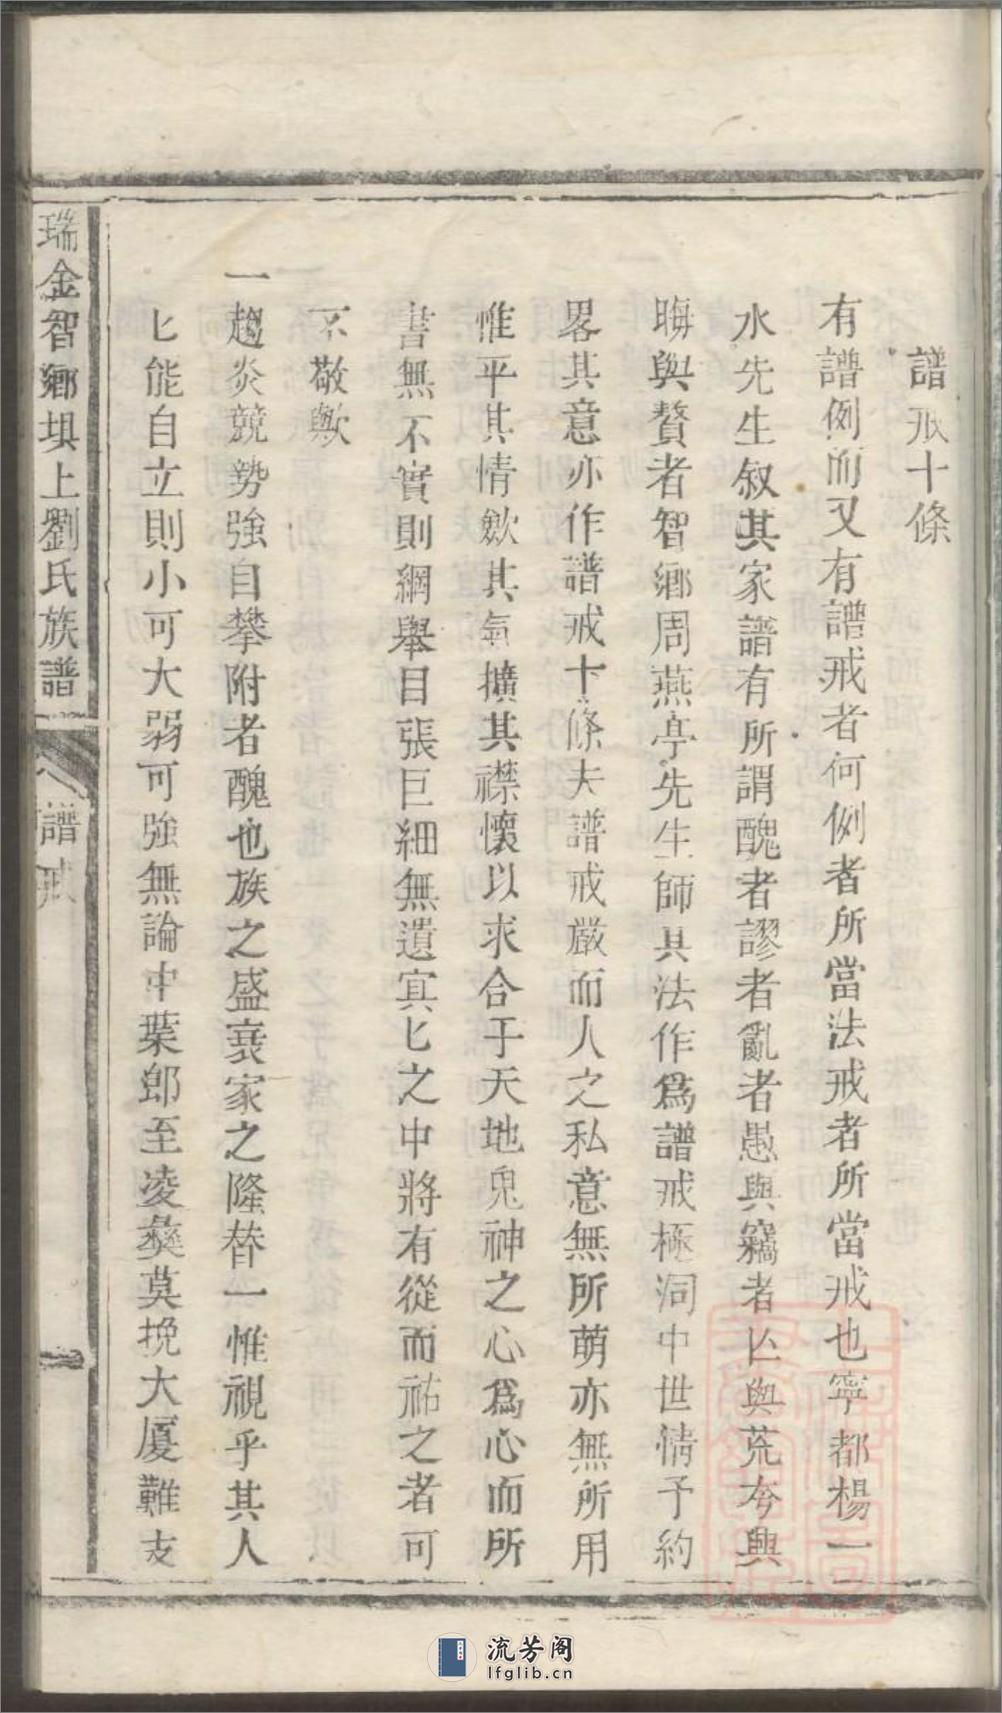 譜戒十條
有譜例而又有譜戒者何例者所當法戒者所當戒也寧都楊一
水先生叙其家譜有所謂醜者謬者亂者愚與竊者亾與荒夸與
聨與贅者智鄉周燕亭先生師其法作爲譜戒極洞中世情予約
畧其意亦作譜戒十條夫譜戒嚴而人之私意無所萌亦無所用
惟平其情歛其氣擴其襟懷以求合于天地鬼神之心爲心而所
書無不實則綱舉目張巨細無遺寘匕之中將有從而祐之者可
不敬歟
一趨炎競勢強自攀附者醜也族之盛衰家之隆替一惟視乎其人
匕能自立則小可大弱可強無論中葉郎至凌彝莫挽大厦難支
瑞金智鄉垻上劉氏族譜
譜戒
一
流芳阁
lfglib.cn